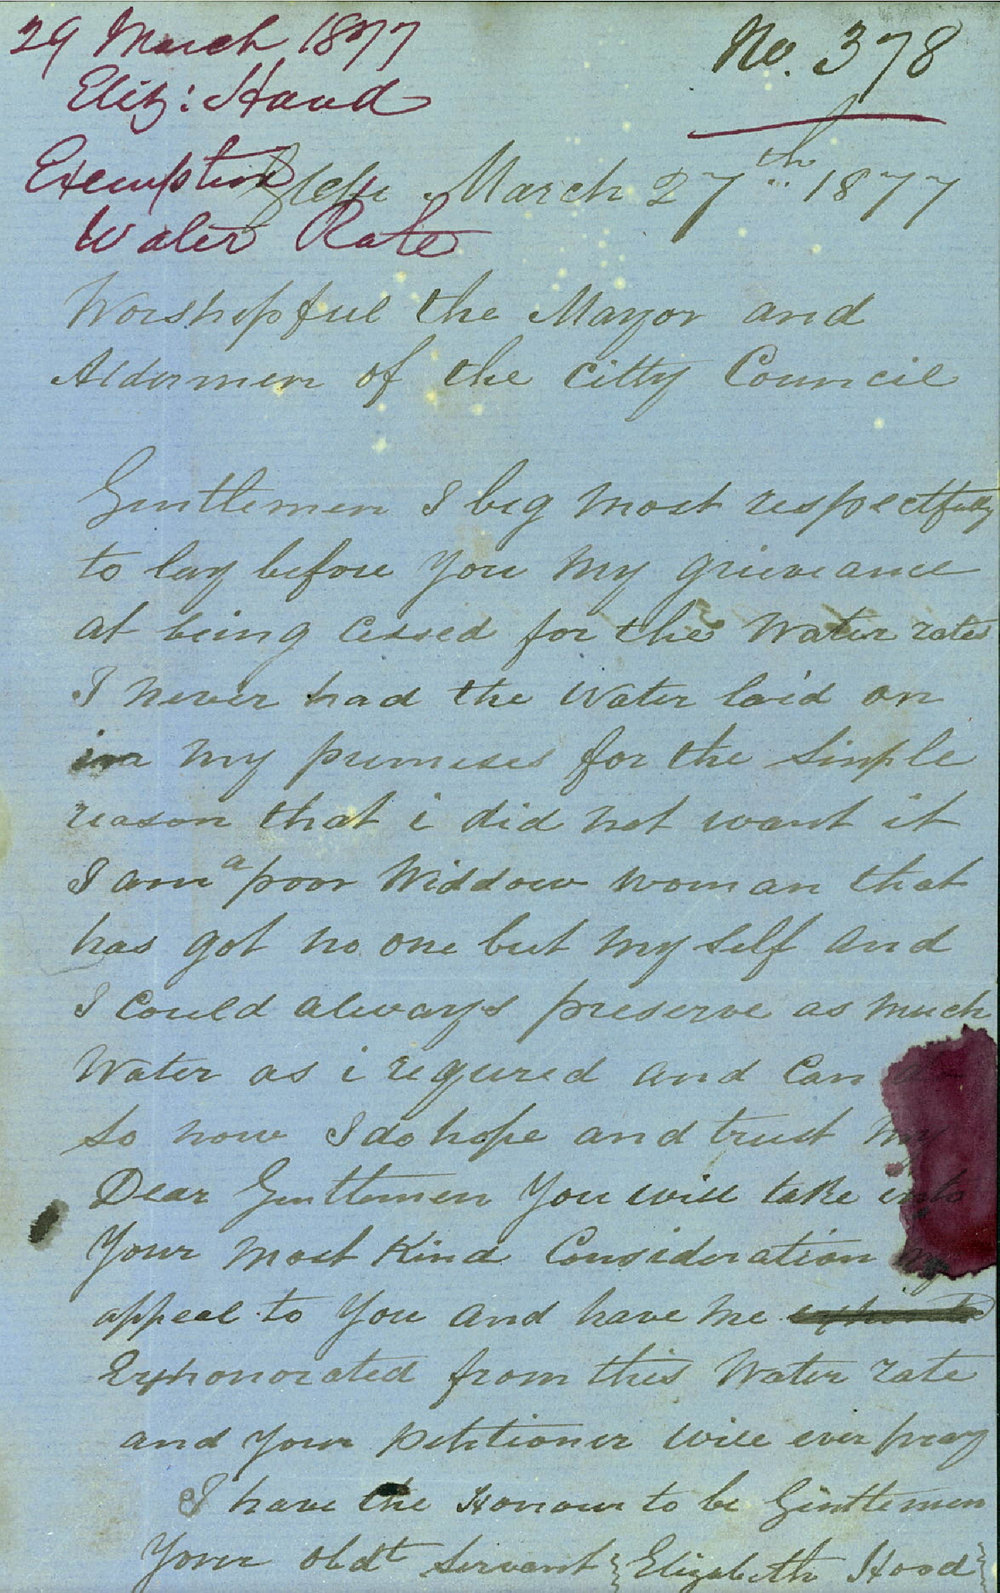 29 March 1877
No. 378
Eliz: Hood
Exemption
Glebe March 27th 1877
Water Rate
Worshopful the Mayor and
Aldermen of the Citty Council
Gentlemen I beg most respectfully
to lay before You my grieveance
at being Cessed for the Water rates
I never had the Water laid on
in my premeses for the Simple
reason that i did not want it
I am a poor Widdow woman that
has got no one but my self and
I Could always preserve as much
Water as i requred and Can do
so now I do hope and trust my
Dear Gentlemen You will take into
Your most Kind Consideration my
appeel to You and have me
Exhonorated from this Water rate
and Your petitioner will ever pray
I have the Honour to be Gentlemen
Your obdt Servant {Elizabeth Hood}